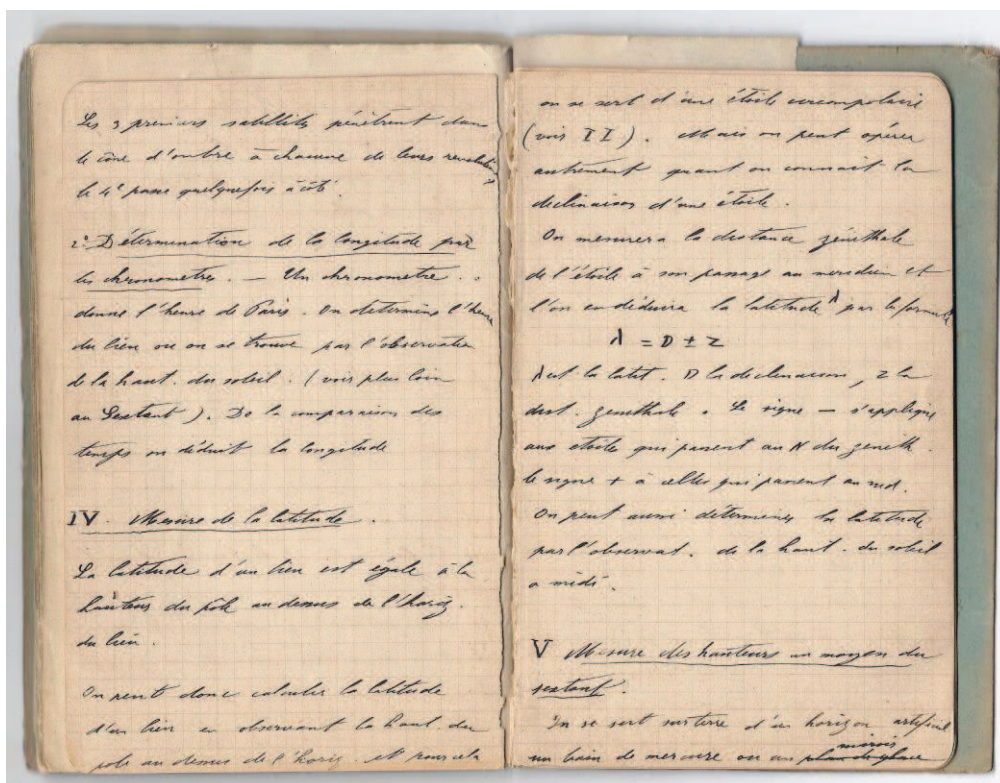 Les 3 premiers satellites pénètrent dans
le cône d'ombre à chacune de leurs revolutions
le 4e passe quelquefois à côté.
2° Détermination de la longitude par
les chronometres. — Un chronometre
donne l'heure de Paris. On determine l'heure
du lieu ou on se trouve par l'observation
de la haut. du soleil. (voir plus loin
au Sextant). De la comparaison des
temps on déduit la longitude
IV. Mesure de la latitude.
La latitude d'un lieu est égale à la
hauteur du pôle au dessus de l'horiz.
du lieu.
On peut donc calculer la latitude
d'un lieu en observant la haut du
pole au dessus de l'horiz. et pour cela
on se sert d'une étoile circompolaire
(voir II). Mais on peut opérer
autrement quant on connait la
declinaison d'une étoile.
On mesurera la distance zénithale
de l'étoile à son passage au meridien et
l'on en déduira la latitude λ par la formule
λ = D ± Z
λ est la latit. D la declinaison, Z la
dist. zenithale. Le signe — s'applique
aux étoiles qui passent au N du zenith.
le signe + à celles qui passent au sud.
On peut aussi déterminer la latitude
par l'observat. de la haut. du soleil
a midi.
V Mesure des hauteurs au moyen du
sextant.
On se sert sur terre d'un horizon artificiel
un bain de mercure ou un plan de glace miroir